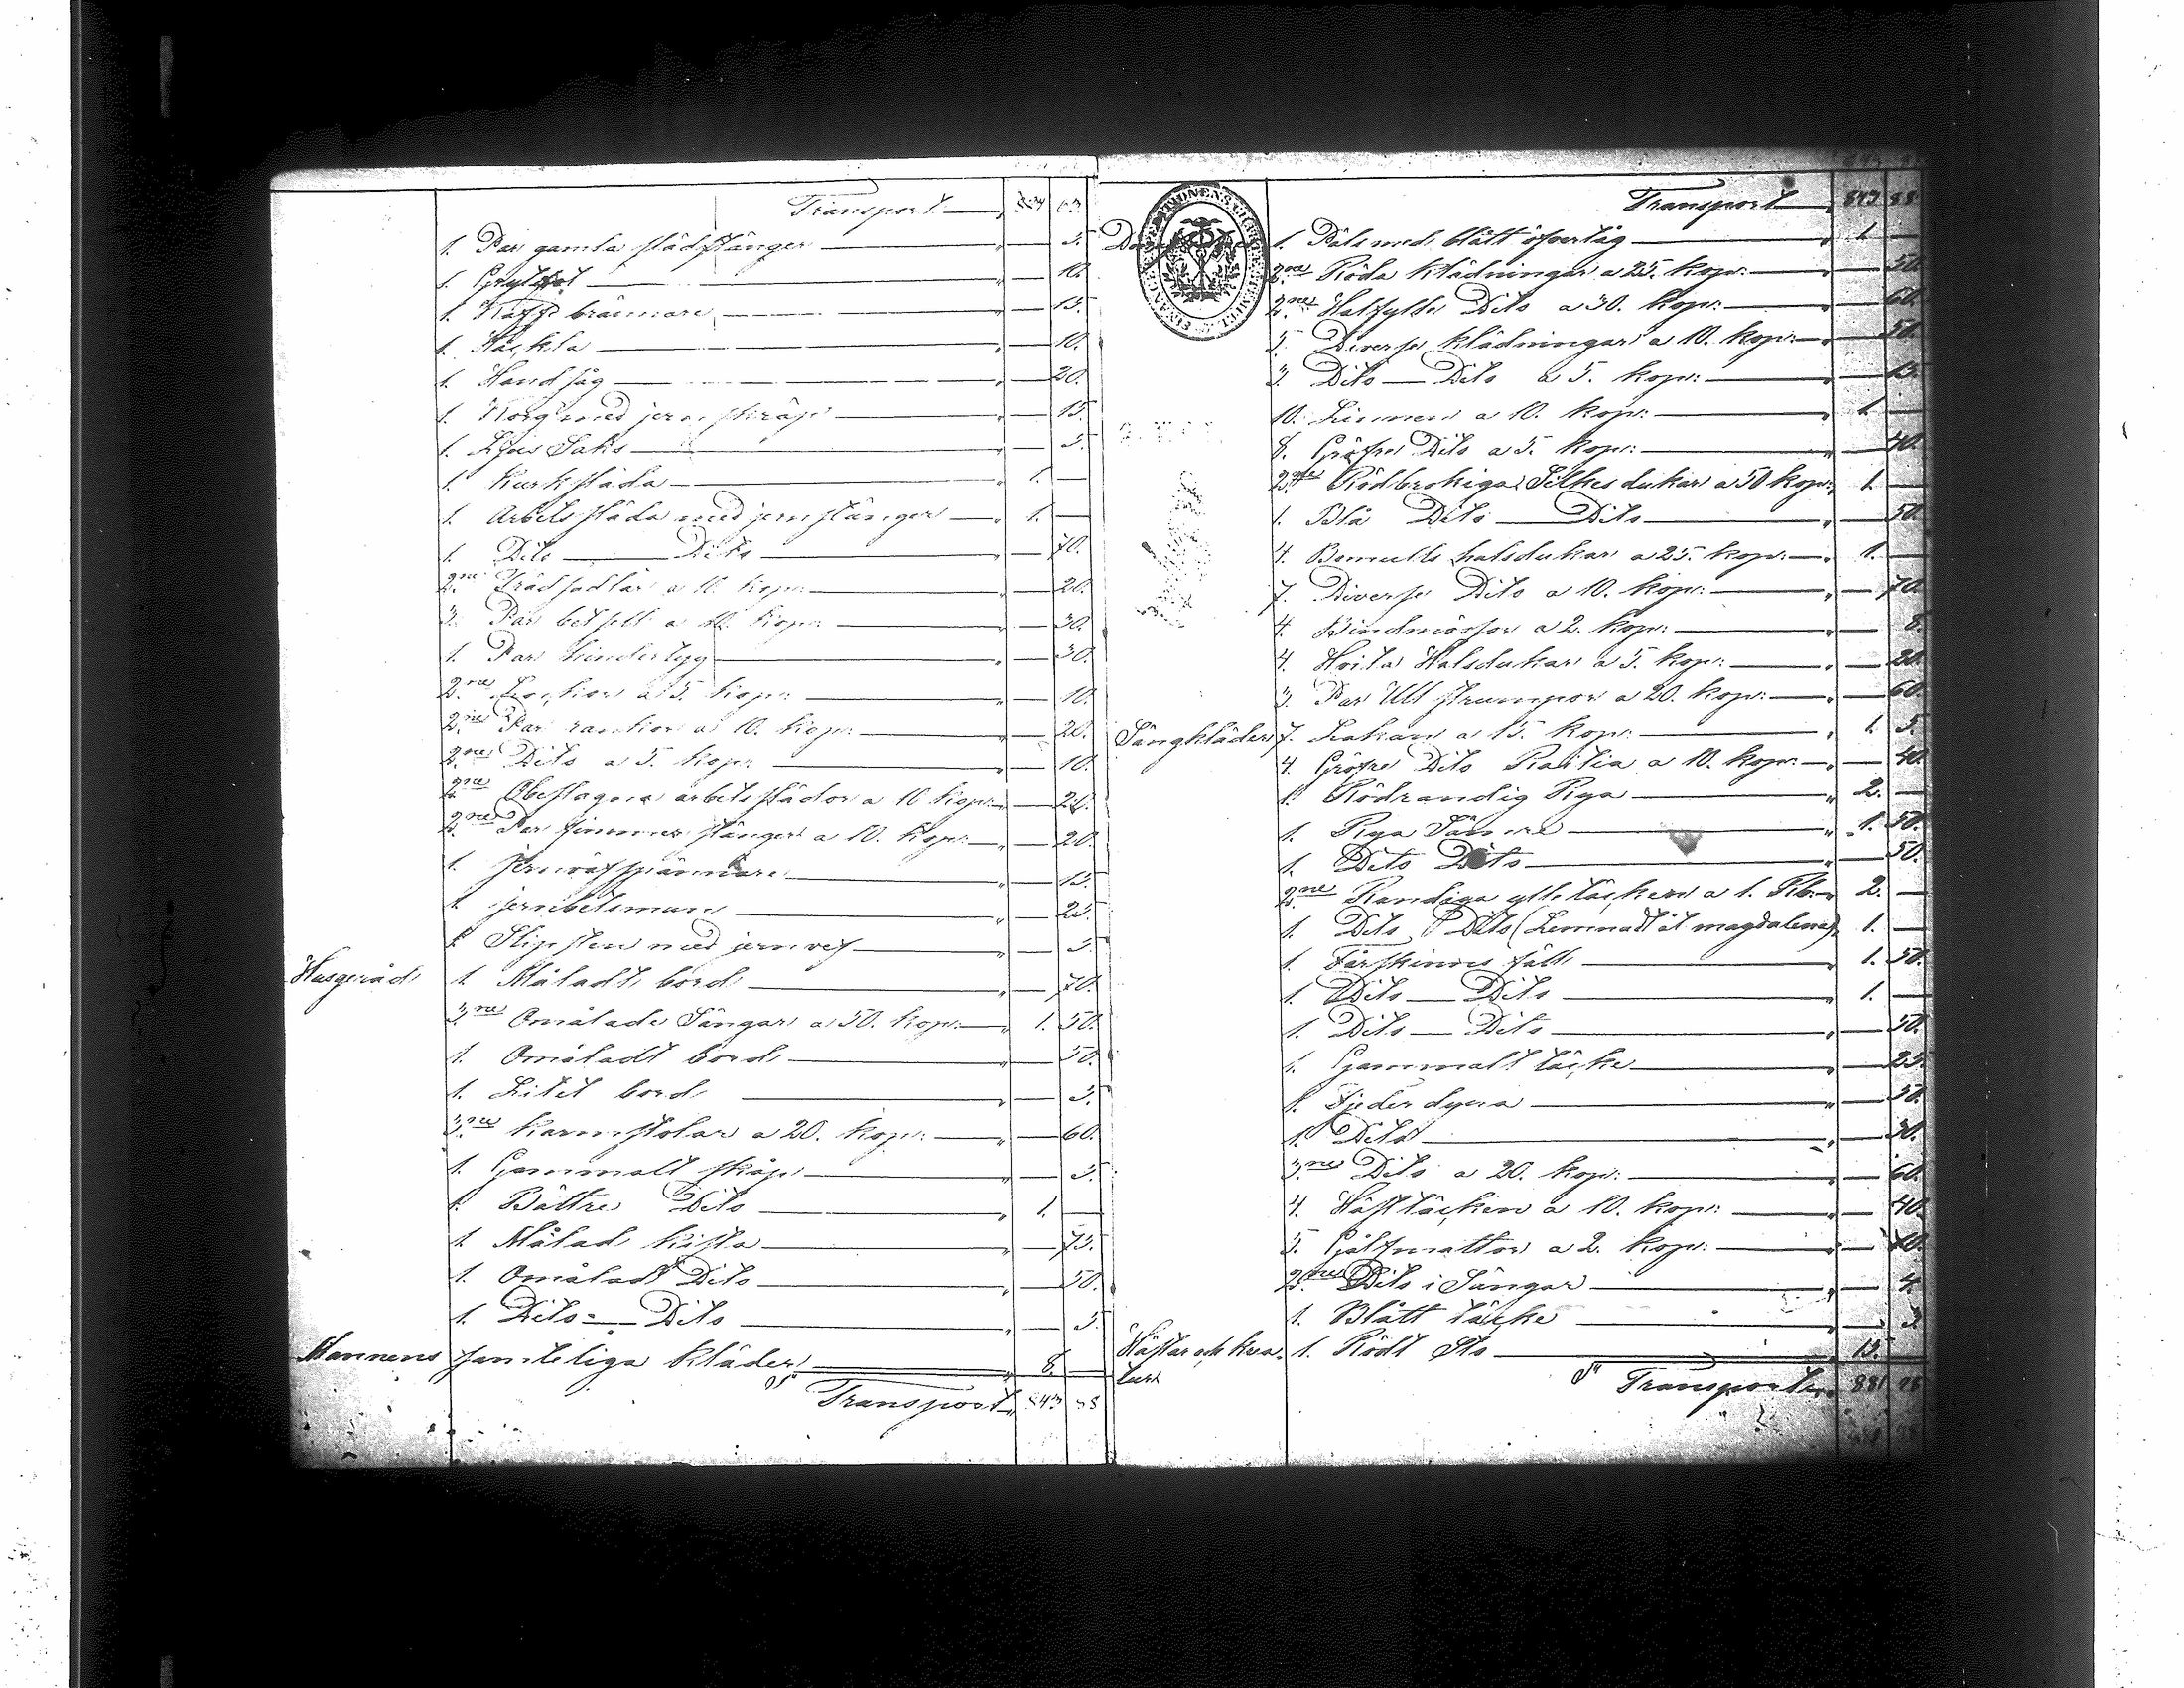 Transport 824 63
1. Par gamla slädstänger 5.
1. Grytfot 10.
1. Kaffe brännare 15.
1. Häckla 10.
1. Handsåg 20.
1. Korg med jern skräp 15.
1. Ljus Saks 5.
1. Kurksläda 1.
1. Arbets släda med jernstänger 1.
1. Dito Dito 70.
2ne Trädsadlar a 10. kop: 20.
3. Par betslell a 10. kop: 30.
1. Par Lindertyg 30.
2ne a 5. kop: 10.
2ne Par rankor a 10. kop: 20.
2ne Dito a 5. kop: 10.
2ne Obeslagna arbets slädor a 10 kop: 20.
2ne Par timmer stänger a 10. kop: 20.
1. 15.
1. jernbetsman 25.
1. Slipsten med jernvef 5.
Husgeråd 1. Måladt bord 70.
3ne Omålade Sängar a 50. kop: 1. 50.
1. Omåladt bord 50.
1. Litet bord 5.
3ne karmstolar a 20. kop: 60.
1. Gammalt skåp 5.
1. Bättre Dito 1.
1. Målad kista 75.
1. Omålad Dito 50.
1. Dito Dito 5.
Mannens samteliga kläder 8.
Transport 843 88
Transport 843 88
1. Päls med blått öfvertåg 1.
2ne Röda klädningar a 25. kop: 50.
2ne Halfylle Dito a 30. kop: 60.
5. Diverse klädningar a 10. kop: 50.
3. Dito Dito a 5. kop: 15.
10. Linnen a 10. kop: 1.
8. Gröfre Dito a 5. kop: 40.
2ne Rödbrokiga Silkesdukar a 50 kop: 1.
1. Blå Dito Dito 50.
4. Bomulls halsdukar a 25. kop: 1.
7. Diverse Dito a 10. kop: 70.
4. Bindmössor a 2. kop: 8.
4. Hvita Halsdukar a 5. kop: 20.
3. Par Ull strumpor a 20. kop: 60.
Sängkläder 7. Lakan a 15. kop: 1. 5.
4. Gröfre Dito Raitia a 10. kop: 40.
1. Rödrandig Rya 2.
1. Rya Sämre 1. 50.
1. Dito Dito 50.
2ne Randiga ylletäcken a 1. Rb: 2.
1. Dito Dito (Lemnadt åt magdalena) 1.
1. Fårskinns fäll 1. 50.
1. Dito Dito 1.
1. Dito Dito 50.
1. Gammalt täcke 25.
1. Fjeder dyna 50.
1. Dito 30.
3ne Dito a 20. kop: 60.
4. Hästtäcken a 10. kop: 40.
5. Gålfmattor a 2. kop: 10.
2ne Dito i Sängar 4.
1. Blått täcke 5.
Hästar och krea- 1. Rödt Sto 15.
tur
Transport 881 98